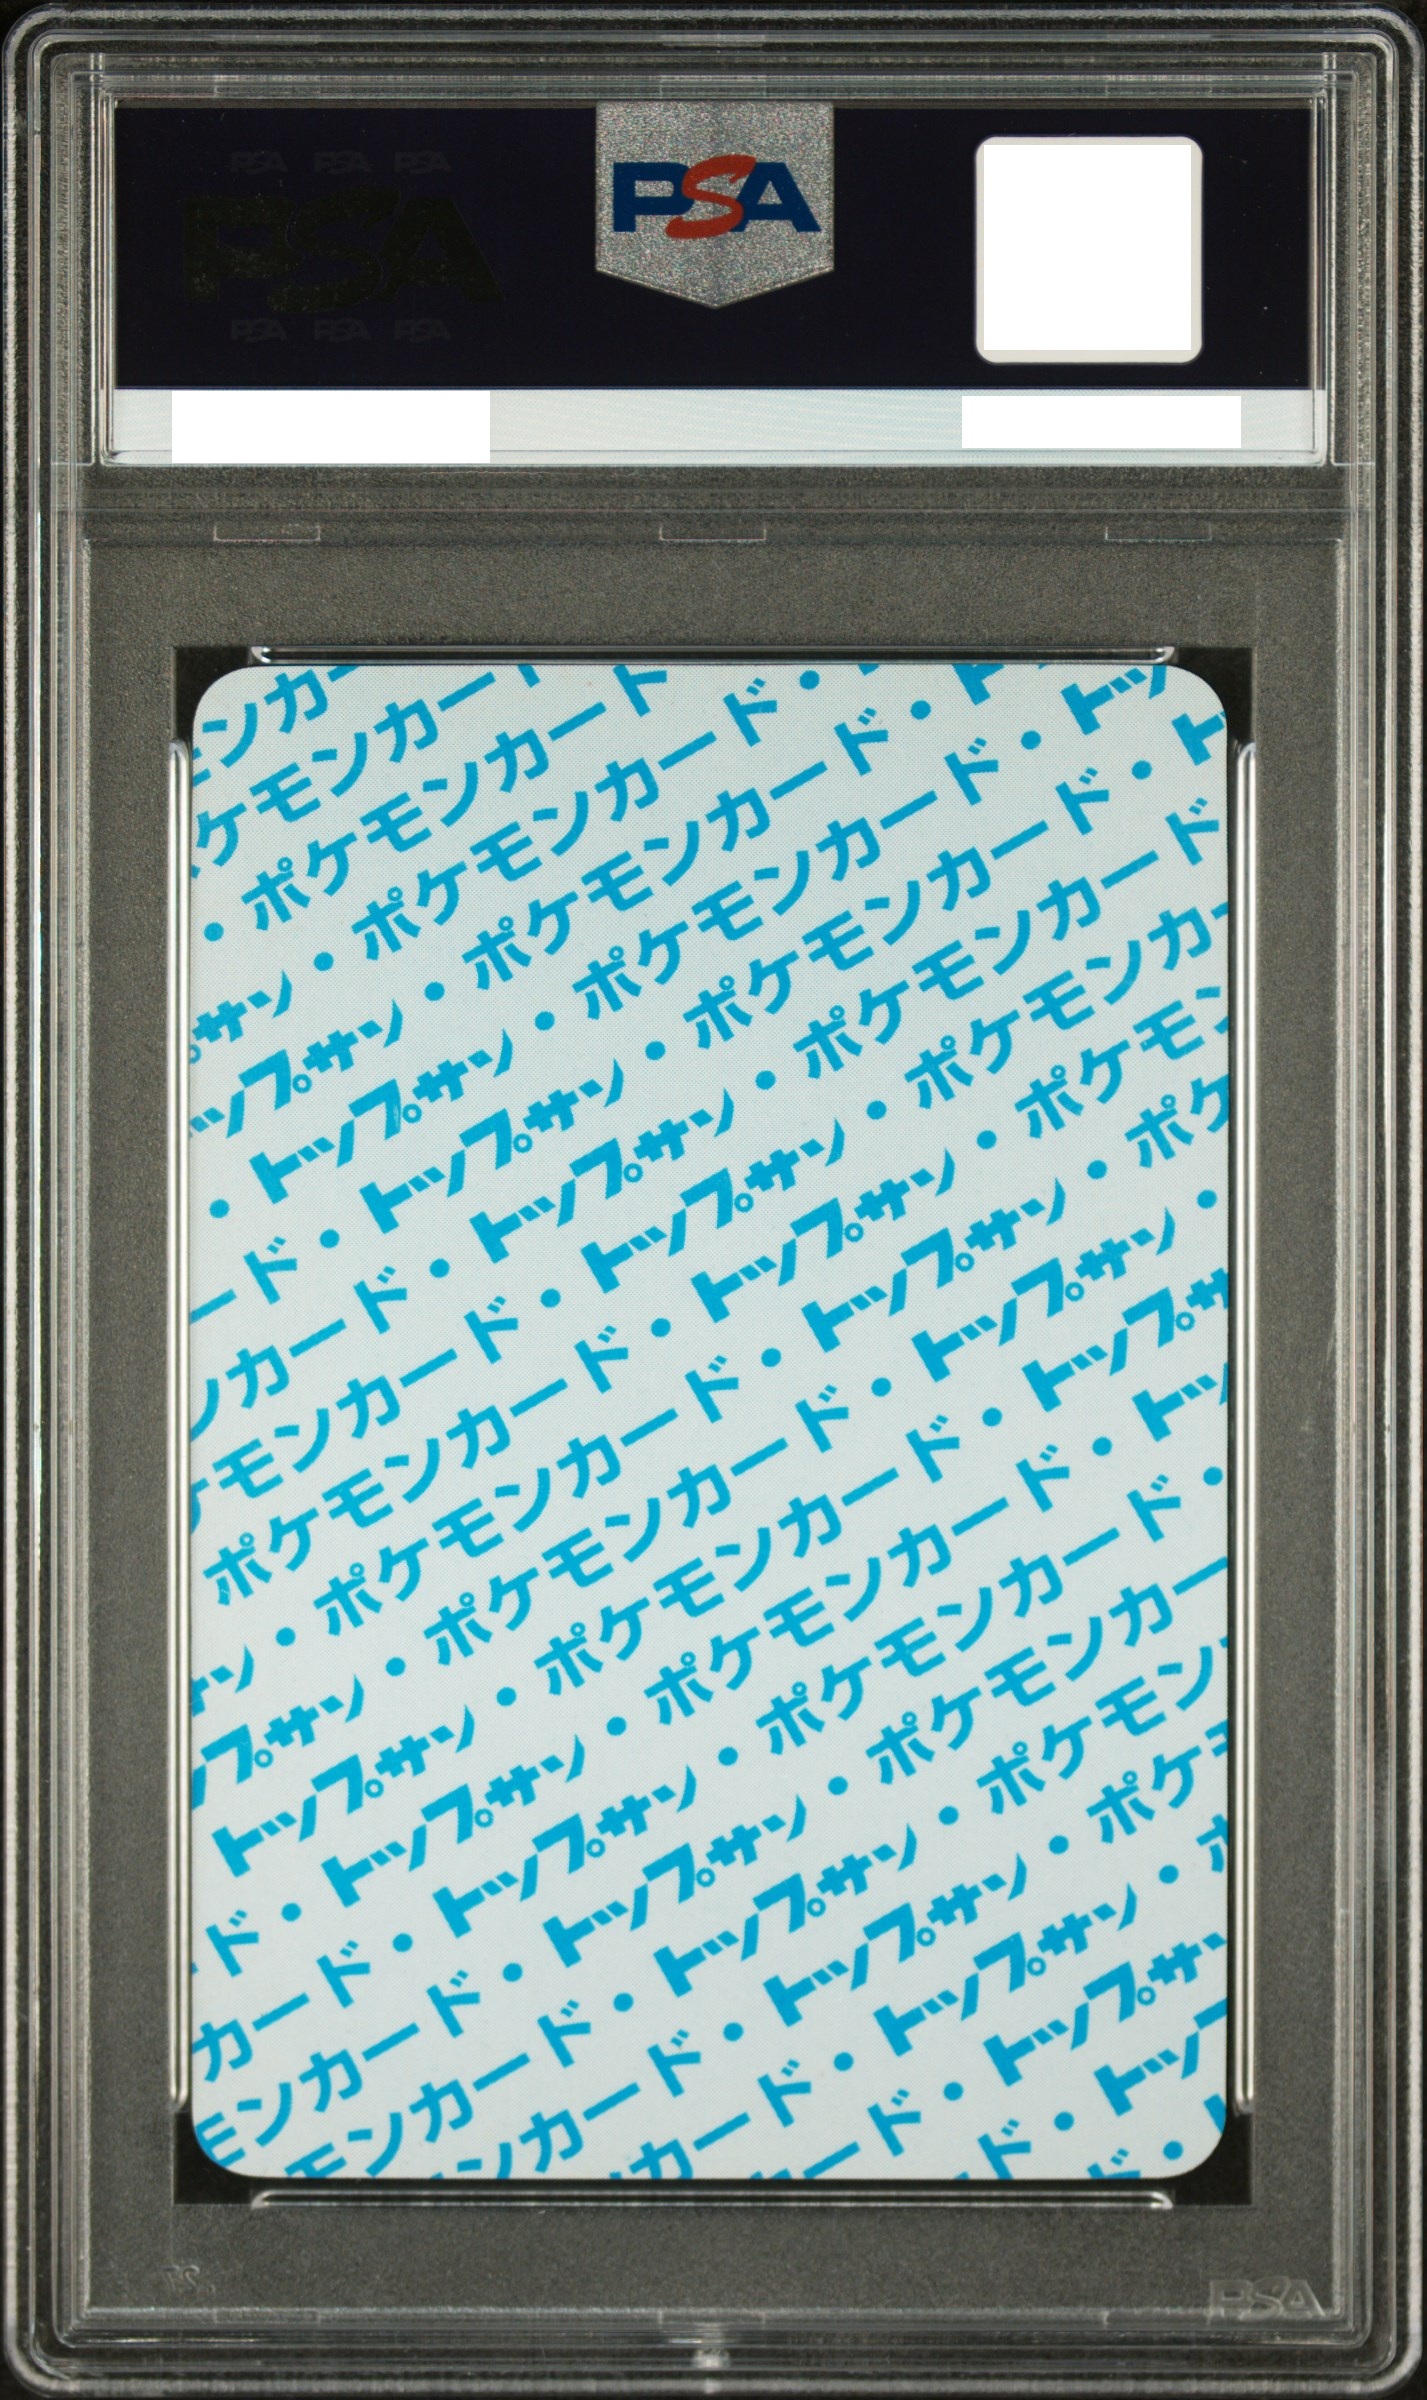 PSA
ンカー
ケモンカー
・ポケモンカード
サン・ポケモンカード・
ップサン・ポケモンカード・ト
・トップサン・ポケモンカード・トッ
ード・トップサン・ポケモンカード・ト
ンカード・トップサン・ポケモンカード
ケモンカード・トップサン・ポケモンカー
ポケモンカード・トップサン・ポケモン
サン・ポケモンカード・トップサン・ポケ
プサン・ポケモンカード・トップサン・
トップサン・ポケモンカード・トップサ
ド・トップサン・ポケモンカード・トッ
カード・トップサン・ポケモンカード・
モンカード・トップサン・ポケモンカー
モンカード・トップサン・ポケモン
ンカード・トップサン・ポケ
カード・トップサン・ポ
ード・トップサ
ド・トップ
ド・
PSA